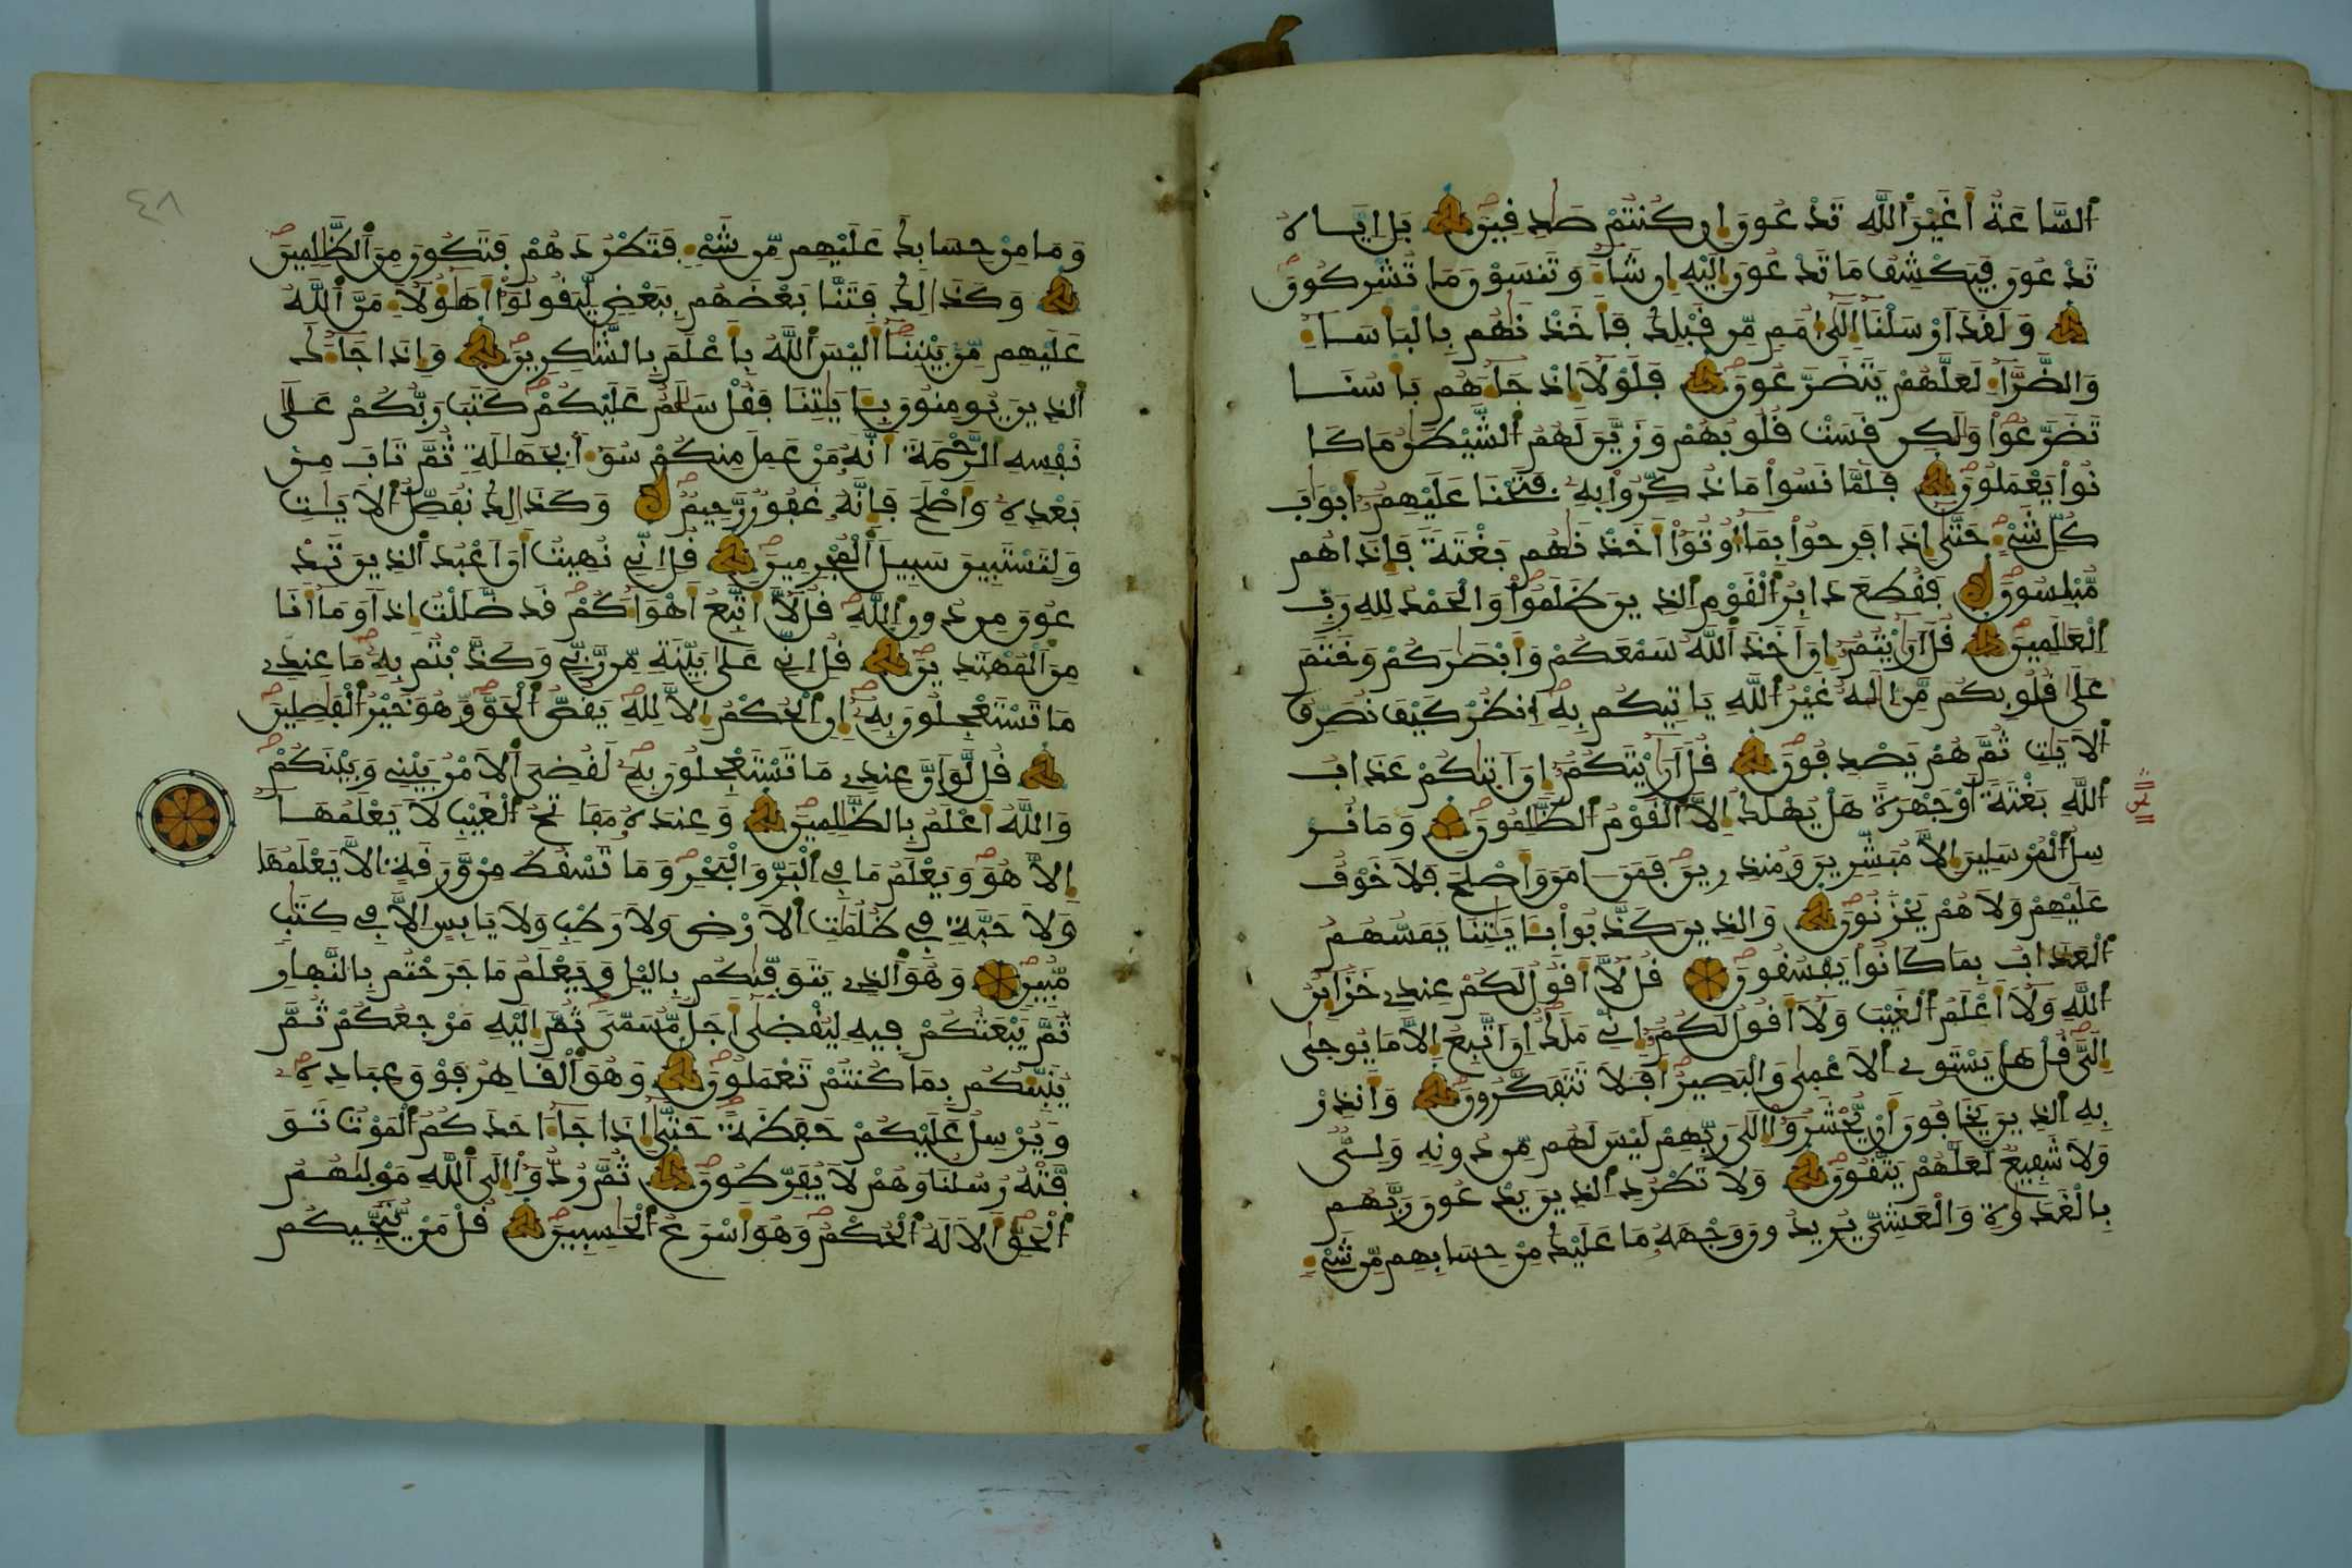 اَ۬لسَّاعَةُ أَغَيْرَ اَ۬للَّهِ تَدْعُونَ إِن كُنتُمْ صَٰدِقِينَ بَلِ اِيَّاهُ
تَدْعُونَ فَيَكْشِفُ مَا تَدْعُونَ إِلَيْهِ إِن شَآءَ وَتَنسَوْنَ مَا تُشْرِكُونَ
وَلَقَدَ اَرْسَلْنَآ إِلَىٰٓ أُمَمٍ مِّن قَبْلِكَ فَأَخَذْنَٰهُم بِالْبَأْسَآءِ
وَالضَّرَّآءِ لَعَلَّهُمْ يَتَضَرَّعُونَ فَلَوْلَآ إِذْ جَآءَهُم بَأْسُنَا
تَضَرَّعُواْ وَلَٰكِن قَسَتْ قُلُوبُهُمْ وَزَيَّنَ لَهُمُ اُ۬لشَّيْطَٰنُ مَا كَا
نُواْ يَعْمَلُونَ فَلَمَّا نَسُواْ مَا ذُكِّرُواْ بِهِۦ فَتَحْنَا عَلَيْهِمُۥٓ أَبْوَٰبَ
كُلِّ شَےْءٍ حَتَّىٰٓ إِذَا فَرِحُواْ بِمَآ أُوتُوٓاْ أَخَذْنَٰهُم بَغْتَةً فَإِذَا هُم
مُّبْلِسُونَ فَقُطِعَ دَابِرُ اُ۬لْقَوْمِ اِ۬لذِينَ ظَلَمُواْ وَالْحَمْدُ لِلهِ رَبِّ
اِ۬لْعَٰلَمِينَ قُلَ اَرَٰيْتُمُۥٓ إِنَ اَخَذَ اَ۬للَّهُ سَمْعَكُمْ وَأَبْصَٰرَكُمْ وَخَتَمَ
عَلَىٰ قُلُوبِكُم مَّنِ اِلَٰهٌ غَيْرُ اُ۬للَّهِ يَاتِيكُم بِهِ اِ۟نظُرْ كَيْفَ نُصَرِّفُ
اُ۬لَايَٰتِ ثُمَّ هُمْ يَصْدِفُونَ قُلَ اَرَٰيْتَكُمُۥٓ إِنَ اَتَىٰكُمْ عَذَابُ
اُ۬للَّهِ بَغْتَةً اَوْ جَهْرَةً هَلْ يُهْلَكُ إِلَّا اَ۬لْقَوْمُ اُ۬لظَّٰلِمُونَ وَمَا نُرْ
سِلُ اُ۬لْمُرْسَلِينَ إِلَّا مُبَشِّرِينَ وَمُنذِرِينَ فَمَنَ اٰمَنَ وَأَصْلَحَ فَلَا خَوْفٌ
عَلَيْهِمْ وَلَا هُمْ يَحْزَنُونَ وَالذِينَ كَذَّبُواْ بِـَٔايَٰتِنَا يَمَسُّهُمُ
اُ۬لْعَذَابُ بِمَا كَانُواْ يَفْسُقُونَ قُل لَّآ أَقُولُ لَكُمْ عِندِے خَزَآئِنُ
اُ۬للَّهِ وَلَآ أَعْلَمُ اُ۬لْغَيْبَ وَلَآ أَقُولُ لَكُمُۥٓ إِنِّے مَلَكٌ اِنَ اَتَّبِعُ إِلَّا مَا يُوحَىٰٓ
إِلَيَّ قُلْ هَلْ يَسْتَوِے اِ۬لَاعْمَىٰ وَالْبَصِيرُ أَفَلَا تَتَفَكَّرُونَ وَأَنذِرْ
بِهِ اِ۬لذِينَ يَخَافُونَ أَنْ يُّحْشَرُوٓاْ إِلَىٰ رَبِّهِمْ لَيْسَ لَهُم مِّن دُونِهِۦ وَلِيٌّ
وَلَا شَفِيعٌ لَّعَلَّهُمْ يَتَّقُونَ وَلَا تَطْرُدِ اِ۬لذِينَ يَدْعُونَ رَبَّهُم
بِالْغَدَوٰةِ وَالْعَشِيِّ يُرِيدُونَ وَجْهَهُۥ مَا عَلَيْكَ مِنْ حِسَابِهِم مِّن شَےْءٍ
وَمَا مِنْ حِسَابِكَ عَلَيْهِم مِّن شَےْءٍ فَتَطْرُدَهُمْ فَتَكُونَ مِنَ اَ۬لظَّٰلِمِينَ
وَكَذَٰلِكَ فَتَنَّا بَعْضَهُم بِبَعْضٍ لِّيَقُولُوٓاْ أَهَٰٓؤُلَآءِ مَنَّ اَ۬للَّهُ
عَلَيْهِم مِّنۢ بَيْنِنَآ أَلَيْسَ اَ۬للَّهُ بِأَعْلَمَ بِالشَّٰكِرِينَ وَإِذَا جَآءَكَ
اَ۬لذِينَ يُومِنُونَ بِـَٔايَٰتِنَا فَقُلْ سَلَٰمٌ عَلَيْكُمْ كَتَبَ رَبُّكُمْ عَلَىٰ
نَفْسِهِ اِ۬لرَّحْمَةَ أَنَّهُۥ مَنْ عَمِلَ مِنكُمْ سُوٓءاً بِجَهَٰلَةٍ ثُمَّ تَابَ مِنۢ
بَعْدِهِۦ وَأَصْلَحَ فَإِنَّهُۥ غَفُورٌ رَّحِيمٌ وَكَذَٰلِكَ نُفَصِّلُ اُ۬لَايَٰتِ
وَلِتَسْتَبِينَ سَبِيلَ اَ۬لْمُجْرِمِينَ قُلِ اِنِّے نُهِيتُ أَنَ اَعْبُدَ اَ۬لذِينَ تَدْ
عُونَ مِن دُونِ اِ۬للَّهِ قُل لَّآ أَتَّبِعُ أَهْوَآءَكُمْ قَد ضَّلَلْتُ إِذاً وَمَآ أَنَا
مِنَ اَ۬لْمُهْتَدِينَ قُلِ اِنِّے عَلَىٰ بَيِّنَةٍ مِّن رَّبِّے وَكَذَّبْتُم بِهِۦ مَا عِندِے
مَا تَسْتَعْجِلُونَ بِهِۦٓ إِنِ اِ۬لْحُكْمُ إِلَّا لِلهِ يَقُصُّ اُ۬لْحَقَّ وَهُوَ خَيْرُ اُ۬لْفَٰصِلِينَ
قُل لَّوَ اَنَّ عِندِے مَا تَسْتَعْجِلُونَ بِهِۦ لَقُضِيَ اَ۬لَامْرُ بَيْنِے وَبَيْنَكُمْ
وَاللَّهُ أَعْلَمُ بِالظَّٰلِمِينَ وَعِندَهُۥ مَفَاتِحُ اُ۬لْغَيْبِ لَا يَعْلَمُهَآ
إِلَّا هُوَ وَيَعْلَمُ مَا فِے اِ۬لْبَرِّ وَالْبَحْرِ وَمَا تَسْقُطُ مِنْ وَّرَقَةٍ اِلَّا يَعْلَمُهَا
وَلَا حَبَّةٍ فِے ظُلُمَٰتِ اِ۬لَارْضِ وَلَا رَطْبٍ وَلَا يَابِسٍ اِلَّا فِے كِتَٰبٍ
مُّبِينٍ وَهُوَ اَ۬لذِے يَتَوَفَّىٰكُم بِاليْلِ وَيَعْلَمُ مَا جَرَحْتُم بِالنَّهَارِ
ثُمَّ يَبْعَثُكُمْ فِيهِ لِيُقْضَىٰٓ أَجَلٌ مُّسَمًّى ثُمَّ إِلَيْهِ مَرْجِعُكُمْ ثُمَّ
يُنَبِّئُكُم بِمَا كُنتُمْ تَعْمَلُونَ وَهُوَ اَ۬لْقَاهِرُ فَوْقَ عِبَادِهِۦ
وَيُرْسِلُ عَلَيْكُمْ حَفَظَةً حَتَّىٰٓ إِذَا جَآءَ احَدَكُمُ اُ۬لْمَوْتُ تَوَ
فَّتْهُ رُسُلُنَا وَهُمْ لَا يُفَرِّطُونَ ثُمَّ رُدُّوٓاْ إِلَى اَ۬للَّهِ مَوْلَىٰهُمُ
اُ۬لْحَقِّ أَلَا لَهُ اُ۬لْحُكْمُ وَهُوَ أَسْرَعُ اُ۬لْحَٰسِبِينَ قُلْ مَنْ يُّنَجِّيكُم
٤٨